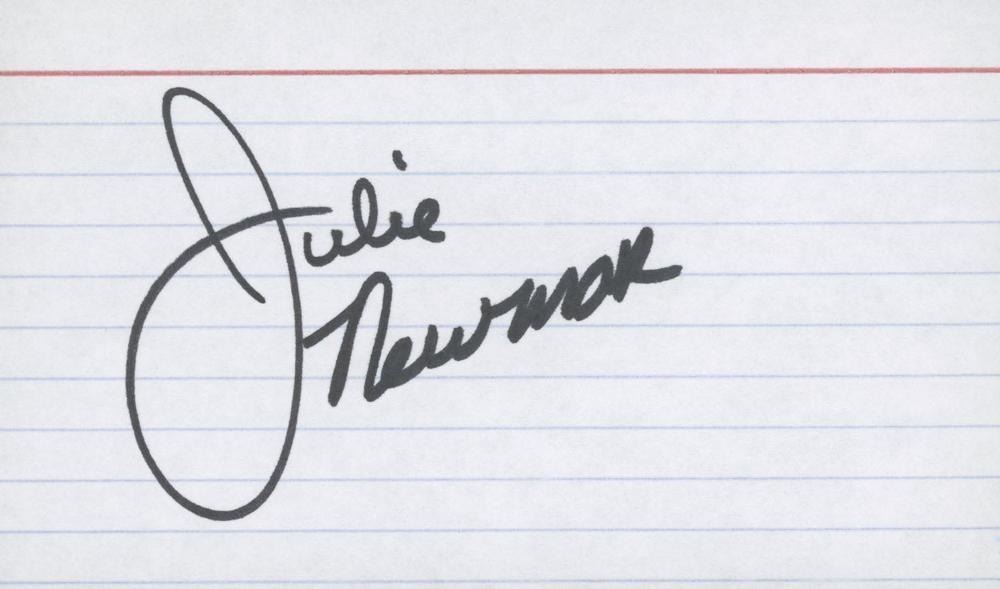 Julie
Newmar